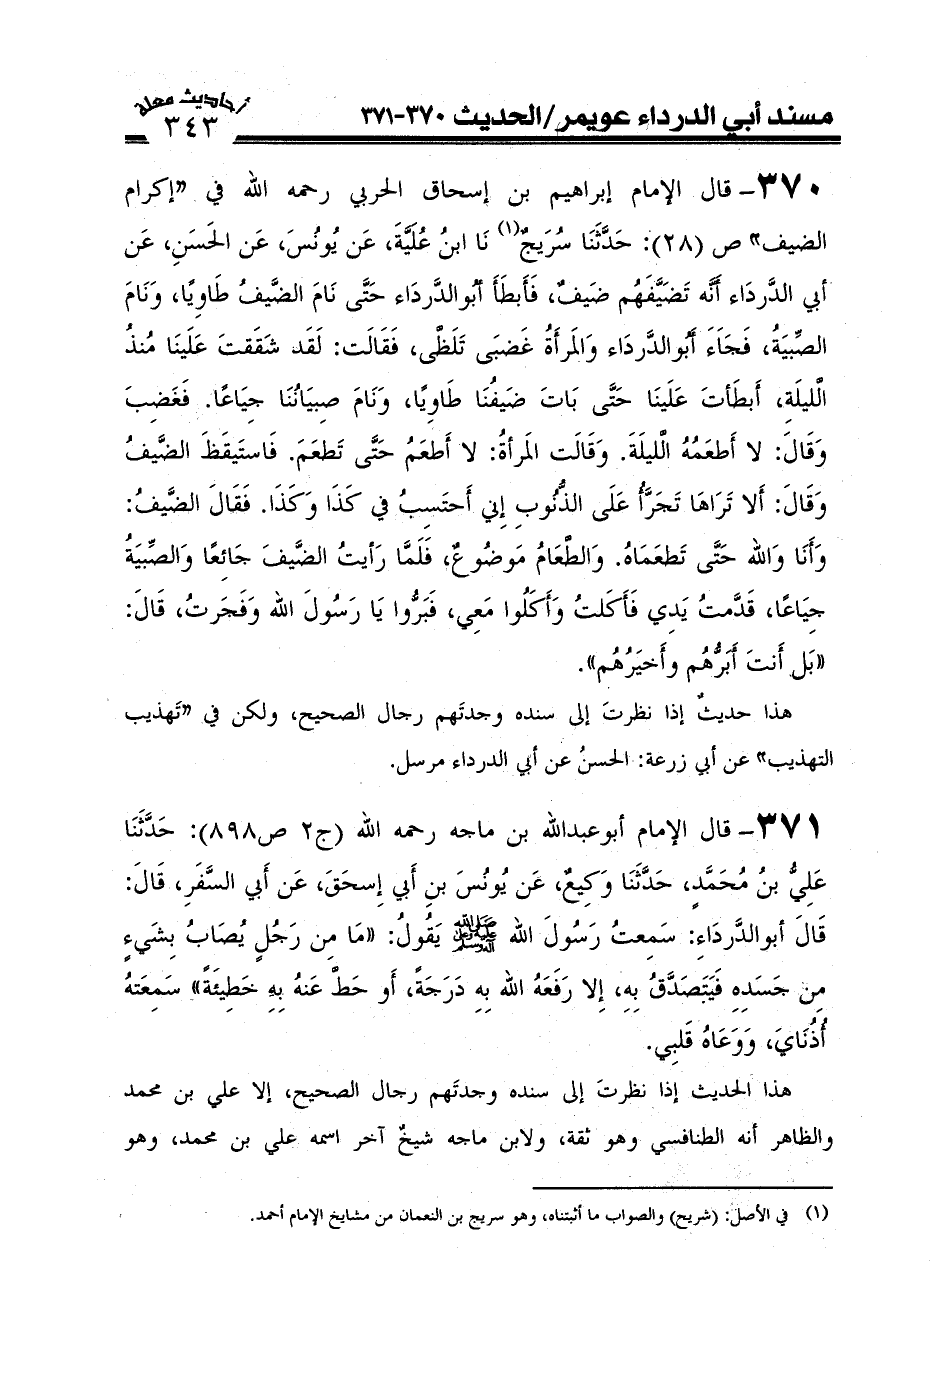 مسند أبي الدرداء عويمر/الحديث ٣٧٠-٣٧١
أحاديث معلة
٣٤٣
٣٧٠- قال الإمام إبراهيم بن إسحاق الحربي رحمه الله في «إكرام
الضيف» ص (٢٨): حَدَّثَنَا سُرَيجٌ(١) نَا ابنُ عُلَيَّةَ، عَن يُونُسَ، عَن الحَسَنِ، عَن
أبي الدَّردَاء أنَّه تَضَيَّفَهُم ضَيفٌ، فَأَبطَأَ أبُوالدَّردَاء حَتَّى نَامَ الضَّيفُ طَاوِيًا، وَنَامَ
الصِّبيَةُ، فَجَاءَ أبُوالدَّردَاء وَالمَرأَةُ غَضبَى تَلَظَّى، فَقَالَت: لَقَد شَقَقتَ عَلَينَا مُنذُ
الَّليلَة، أَبطَأتَ عَلَينَا حَتَّى بَاتَ ضَيفُنَا طَاوِيًا، وَنَامَ صِبيَانُنَا جِيَاعًا. فَغَضِبَ
وَقَالَ: لا أَطعَمُهُ الَّليلَةَ. وَقَالَت المَرأةُ: لا أَطعَمُ حَتَّى تَطعَمَ. فَاستَيقَظَ الضَّيفُ
وَقَالَ: أَلا تَرَاهَا تَجَرَّأُ عَلَى الذُّنُوبِ إِني أَحتَسِبُ في كَذَا وَكَذَا. فَقَالَ الضَّيفُ:
وَأَنَا وَالله حَتَّى تَطعَمَاهُ. وَالطَّعَامُ مَوضُوعٌ، فَلَمَّا رَأيتُ الضَّيفَ جَائعًا وَالصِّبيَةَ
جِيَاعًا، قَدَّمتُ يَدِي فَأَكَلتُ وَأَكَلُوا مَعِي، فَبَرُّوا يَا رَسُولَ الله وَفَجَرتُ، قَالَ:
«بَل أَنتَ أَبَرُّهُم وأَخيَرُهُم».
هذا حديثٌ إذا نظرتَ إلى سنده وجدتَهم رجال الصحيح، ولكن في «تَهذيب
التهذيب» عن أبي زرعة: الحسنُ عن أبي الدرداء مرسل.
٣٧١- قال الإمام أبوعبدالله بن ماجه رحمه الله (ج٢ ص٨٩٨): حَدَّثَنَا
عَلِيُّ بنُ مُحَمَّدٍ، حَدَّثَنَا وَكِيعٌ، عَن يُونُسَ بنِ أَبي إسحَقَ، عَن أبي السَّفَرِ، قَالَ:
قَالَ أبوالدَّردَاءِ: سَمِعتُ رَسُولَ الله ﷺ يَقُولُ: «مَا مِن رَجُلٍ يُصَابُ بِشَيءٍ
مِن جَسَدِهِ فَيَتَصَدَّقُ بِهِ، إِلا رَفَعَهُ الله بِهِ دَرَجَةً، أَو حَطَّ عَنهُ بِهِ خَطِيئَةً» سَمِعَتهُ
أُذُنَايَ، وَوَعَاهُ قَلبِي.
هذا الحديث إذا نظرتَ إلى سنده وجدتَهم رجال الصحيح، إلا علي بن محمد
والظاهر أنه الطنافسي وهو ثقة، ولابن ماجه شيخٌ آخر اسمه علي بن محمد، وهو
(١) في الأصل: (شريح) والصواب ما أثبتناه، وهو سريج بن النعمان من مشايخ الإمام أحمد.